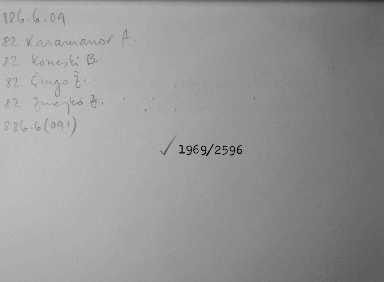 886.6.09
82 Karamanov A.
82 Koneski B.
82 Čingo Ž.
82 Ž.
886.6(091)
✓ 1969/2596